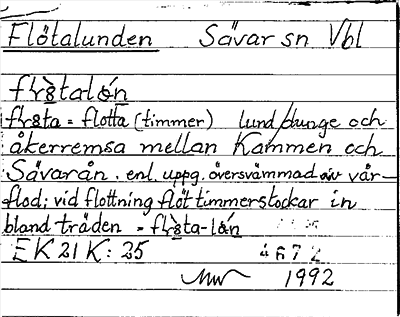 Flötalunden Sävar sn Vbl
flötalon
flöta = flotta (timmer) lund/dunge och
åkerremsa mellan Kammen och
Sävarån. enl. uppg. översvämmad av vår-
flod; vid flottning flöt timmerstockar in
bland träden =
EK 21 K: 25 4672
1992